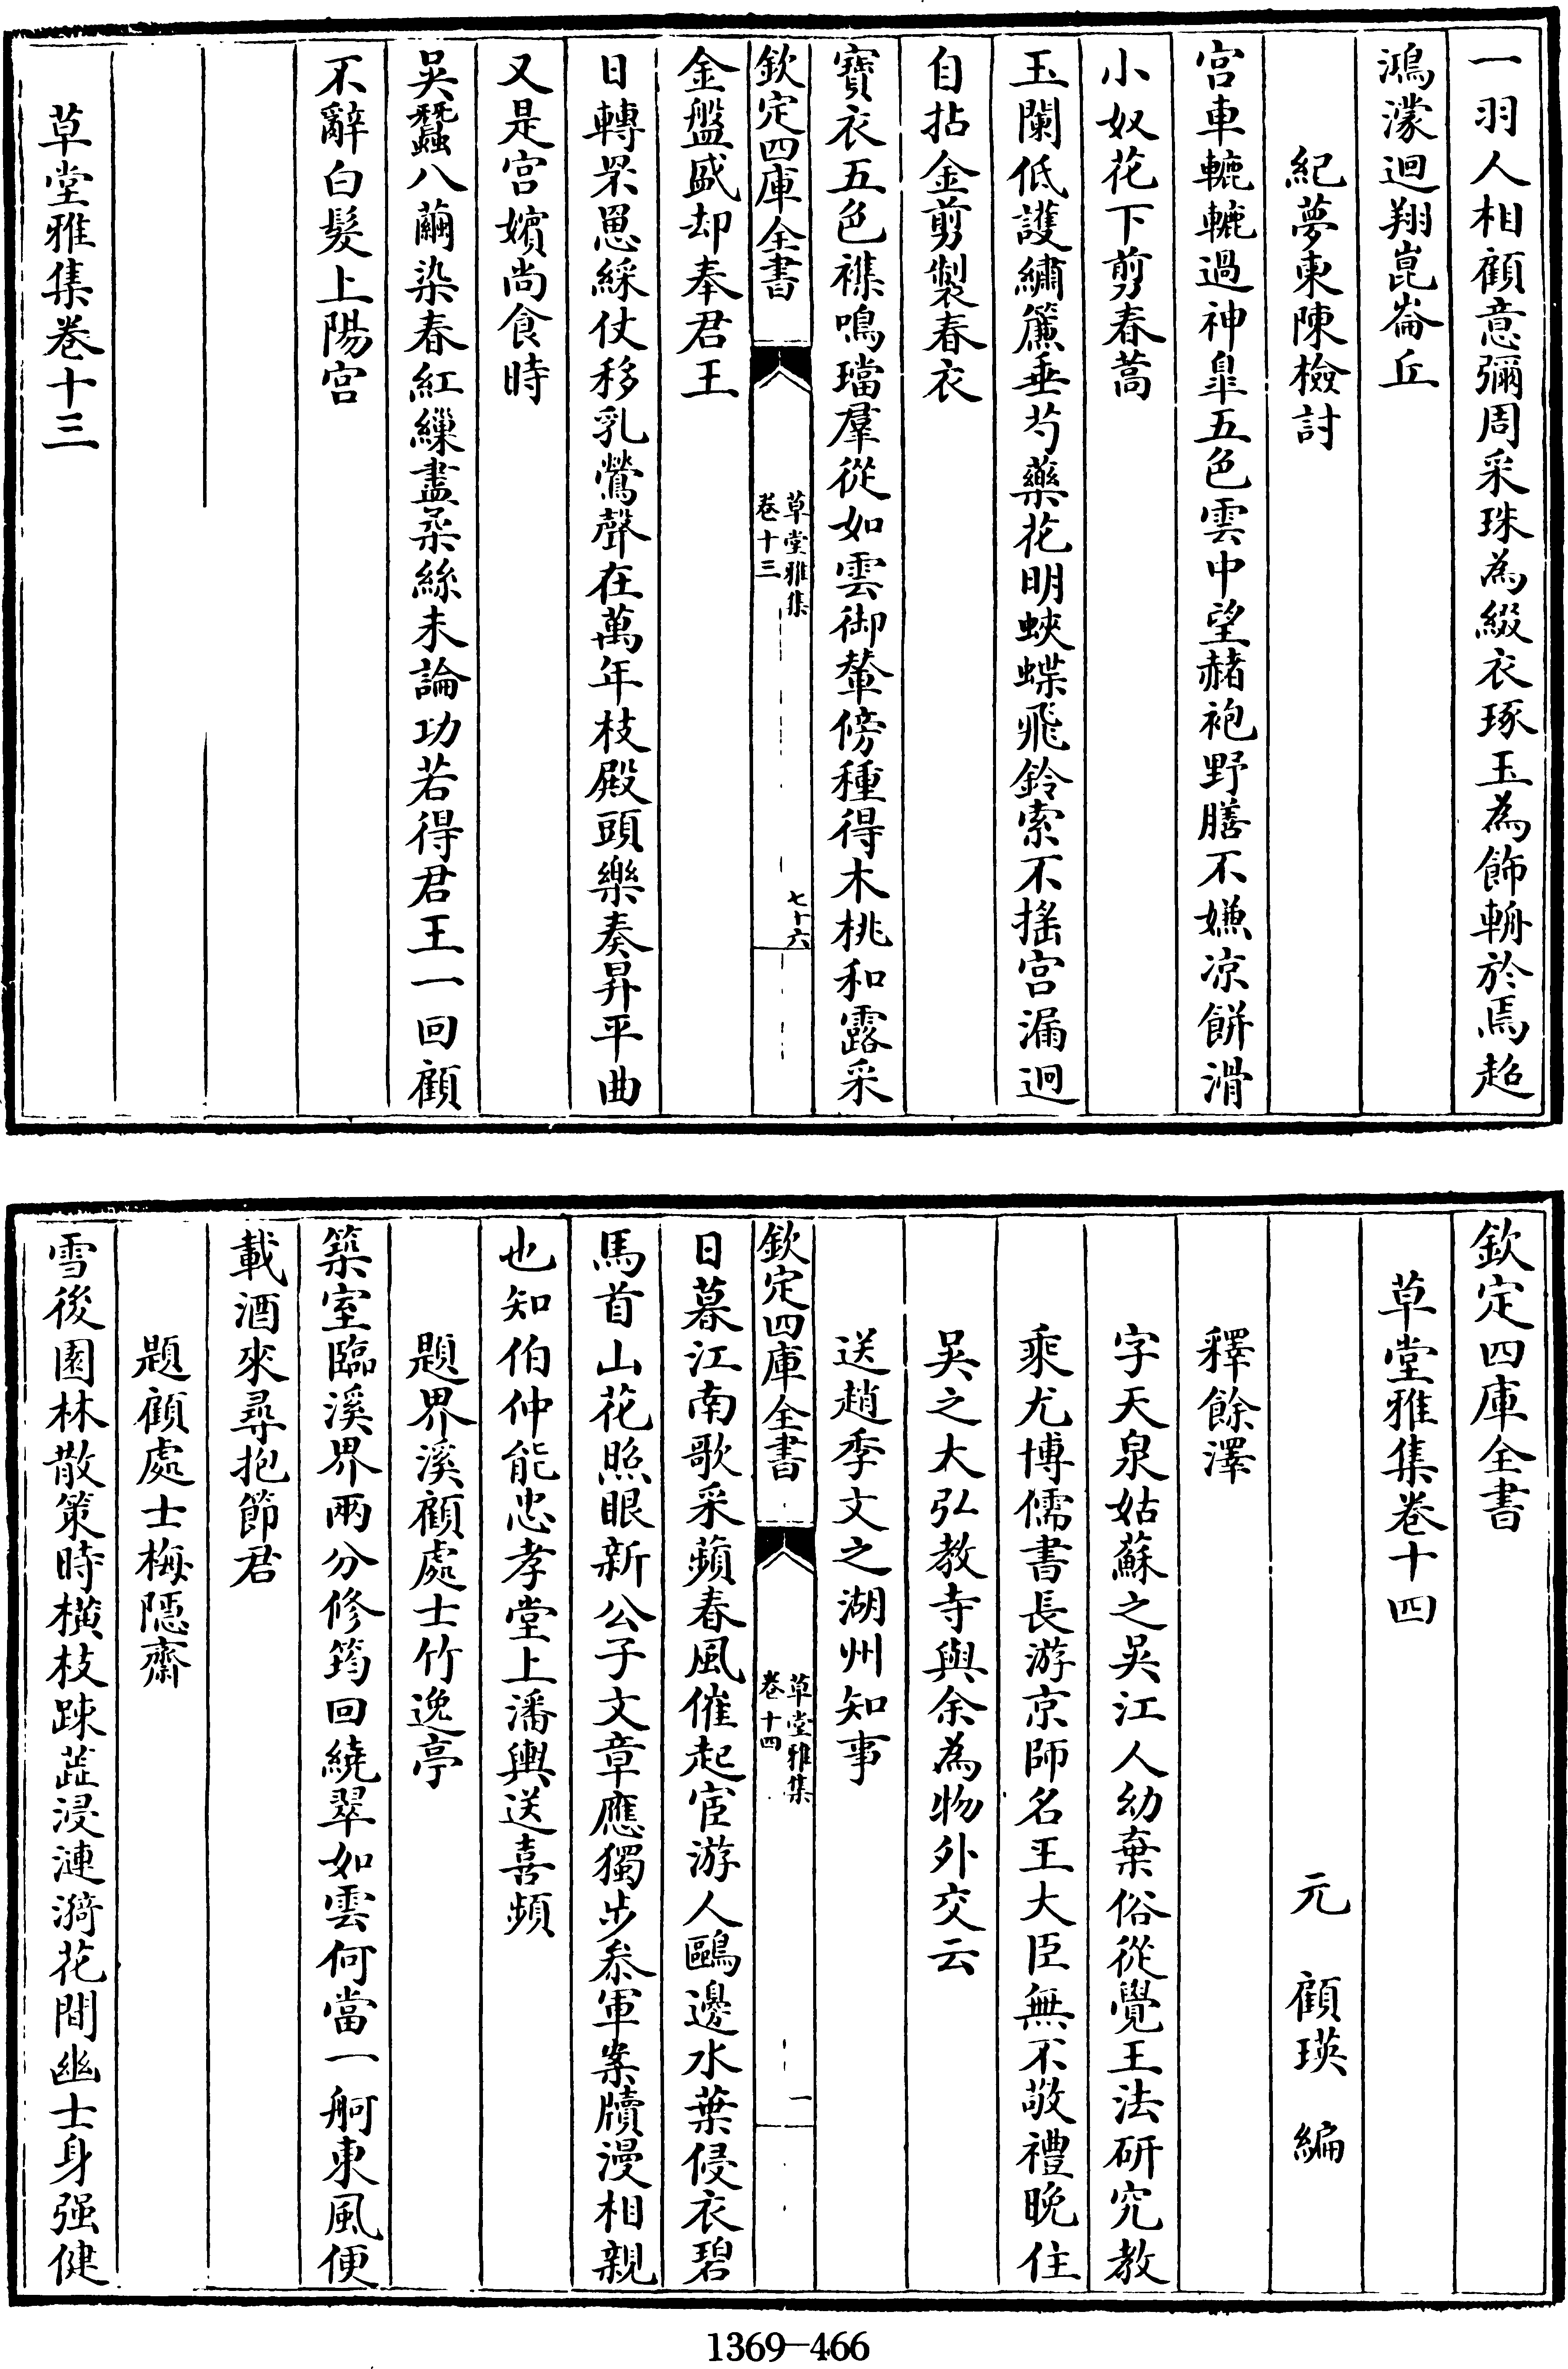 一羽人相顧意彌周采珠為綴衣琢玉為飾輈於焉超
鴻濛迴翔崑崙丘
紀夢柬陳檢討
宮車轆轆過神皐五色雲中望赭袍野膳不嫌凉餅滑
小奴花下剪春蒿
玉闌低護繡簾垂芍藥花明蛺蝶飛鈴索不摇宮漏迥
自拈金剪製春衣
寶衣五色襍鳴璫羣從如雲御輦傍種得木桃和露采
欽定四庫全書
草堂雅集
卷十三
七十六
金盤盛却奉君王
日轉罘罳綵仗移乳鶯聲在萬年枝殿頭樂奏昇平曲
又是宮嬪尚食時
吳蠶八繭染春紅繅盡柔絲未論功若得君王一回顧
不辭白髮上陽宮
草堂雅集卷十三
欽定四庫全書
草堂雅集卷十四
元 顧瑛 編
釋餘澤
字天泉姑蘇之吳江人幼棄俗從覺王法研究教
乘尤博儒書長游京師名王大臣無不敬禮晚住
吳之大弘教寺與余為物外交云
送趙季文之湖州知事
欽定四庫全書
草堂雅集
卷十四
一
日暮江南歌采蘋春風催起宦游人鷗邊水葉侵衣碧
馬首山花照眼新公子文章應獨步叅軍案牘漫相親
也知伯仲能忠孝堂上潘輿送喜頻
題界溪顧處士竹逸亭
築室臨溪界兩分修筠回繞翠如雲何當一舸東風便
載酒來尋抱節君
題顧處士梅隱齋
雪後園林散策時橫枝踈蘂浸漣漪花間幽士身强健
1369-466